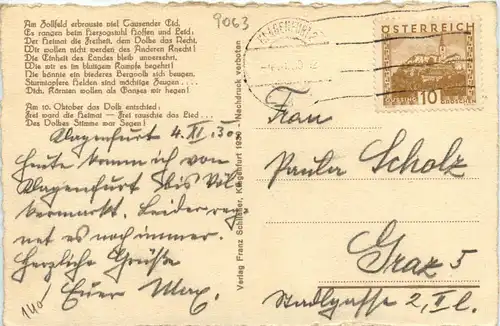 9063
Am Zollfeld erbrauste viel Tausender Eid.
Es rangen beim Herzogstuhl Hoffen und Leid:
Der Heimat die Freiheit, dem Volke das Recht,
Wir wollen nicht werden des Anderen Knecht!
Die Einheit des Landes bleib unversehrt,
Wie wir es im blutigen Kampfe begehrt!
Nie könnte ein biederes Bergvolk sich beugen.
Sturmtapfere Helden sind mächtige Zeugen....
Dich, Kärnten wollen als Ganzes wir hegen!
Am 10. Oktober das Volk entschied:
Frei ward die Heimat — Frei rauschte das Lied...
Des Volkes Stimme war Segen!
Klagenfurt 4. XI. 30.
Heute komm ich von
Klagenfurt bis Völ
kermarkt. Leider reg
net es noch immer.
Herzliche Grüße
Euer Max.
140
Verlag Franz Schilcher, Klagenfurt 1930 Nachdruck verboten
KLAGENFURT 2
ÖSTERREICH
10
GROSCHEN
Frau
Paula Scholz
Graz 5
Stadlgasse 2, II. l.